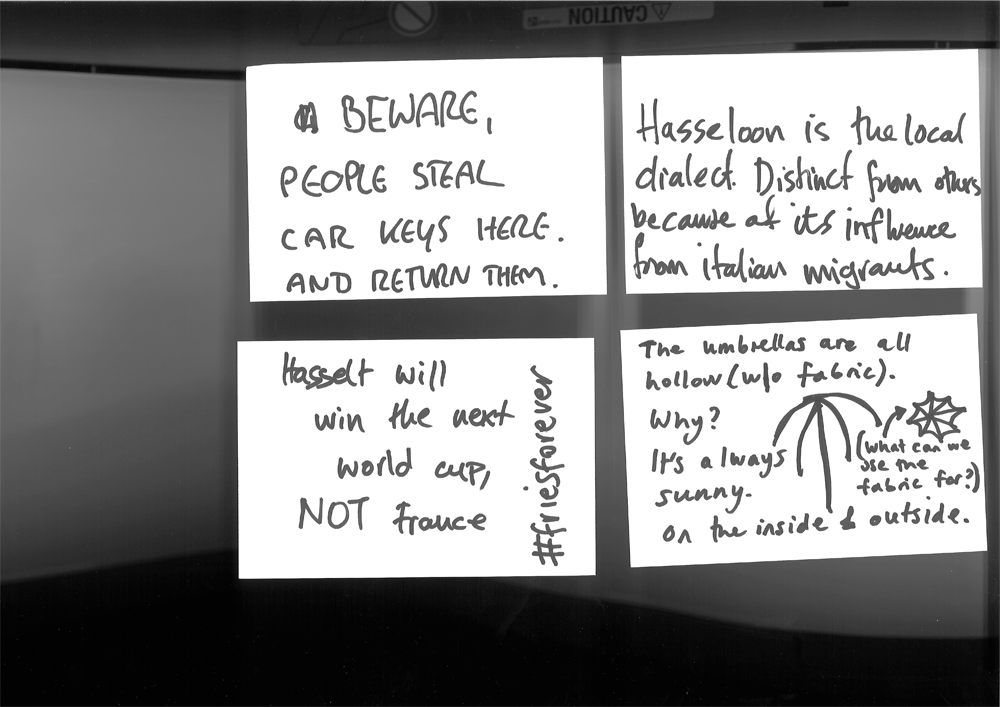 CAUTION
BEWARE,
PEOPLE STEAL
CAR KEYS HERE.
AND RETURN THEM.
Hasseloon is the local
dialect. Distinct from others
because of its influence
from italian migrants.
Hasselt will
win the next
world cup,
NOT france
#friesforever
The umbrellas are all
hollow (w/o fabric).
Why?
It's always
sunny.
on the inside & outside.
(what can we
use the
fabric for?)